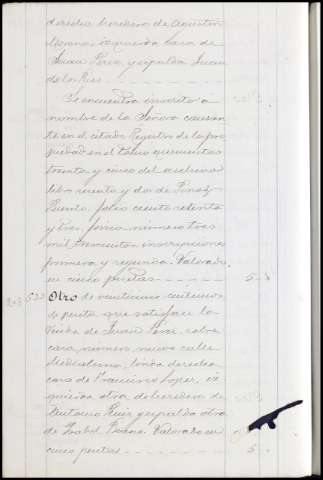 derecha herederos de Agustín
Moreno, izquierda casa de
Juan Pérez y espalda Juan
de los Ríos
Se encuentra inscrito á
nombre de la Señora causan
te en el citado Registro de la pro
piedad en el tomo quinientos
treinta y cinco del archivo
libro ciento y dos de Pinos
Puente folio ciento setenta
y tres, finca número tres
mil trescientos inscripciones
primera y segunda. Valorado
en cinco pesetas 5 "
523 Otro de veinticinco céntimos
de peseta que satisface la
Viuda de Juan Pérez, sobre
casa, número nueve calle
linda derecha
casa de Francisco Lopez, iz
quierda otra de herederos de
Antonio Ruiz y espalda otra
de Isabel Valorado en
cinco pesetas 5 "